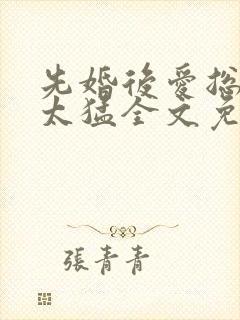 先婚後愛總
太猛全文免
張青青